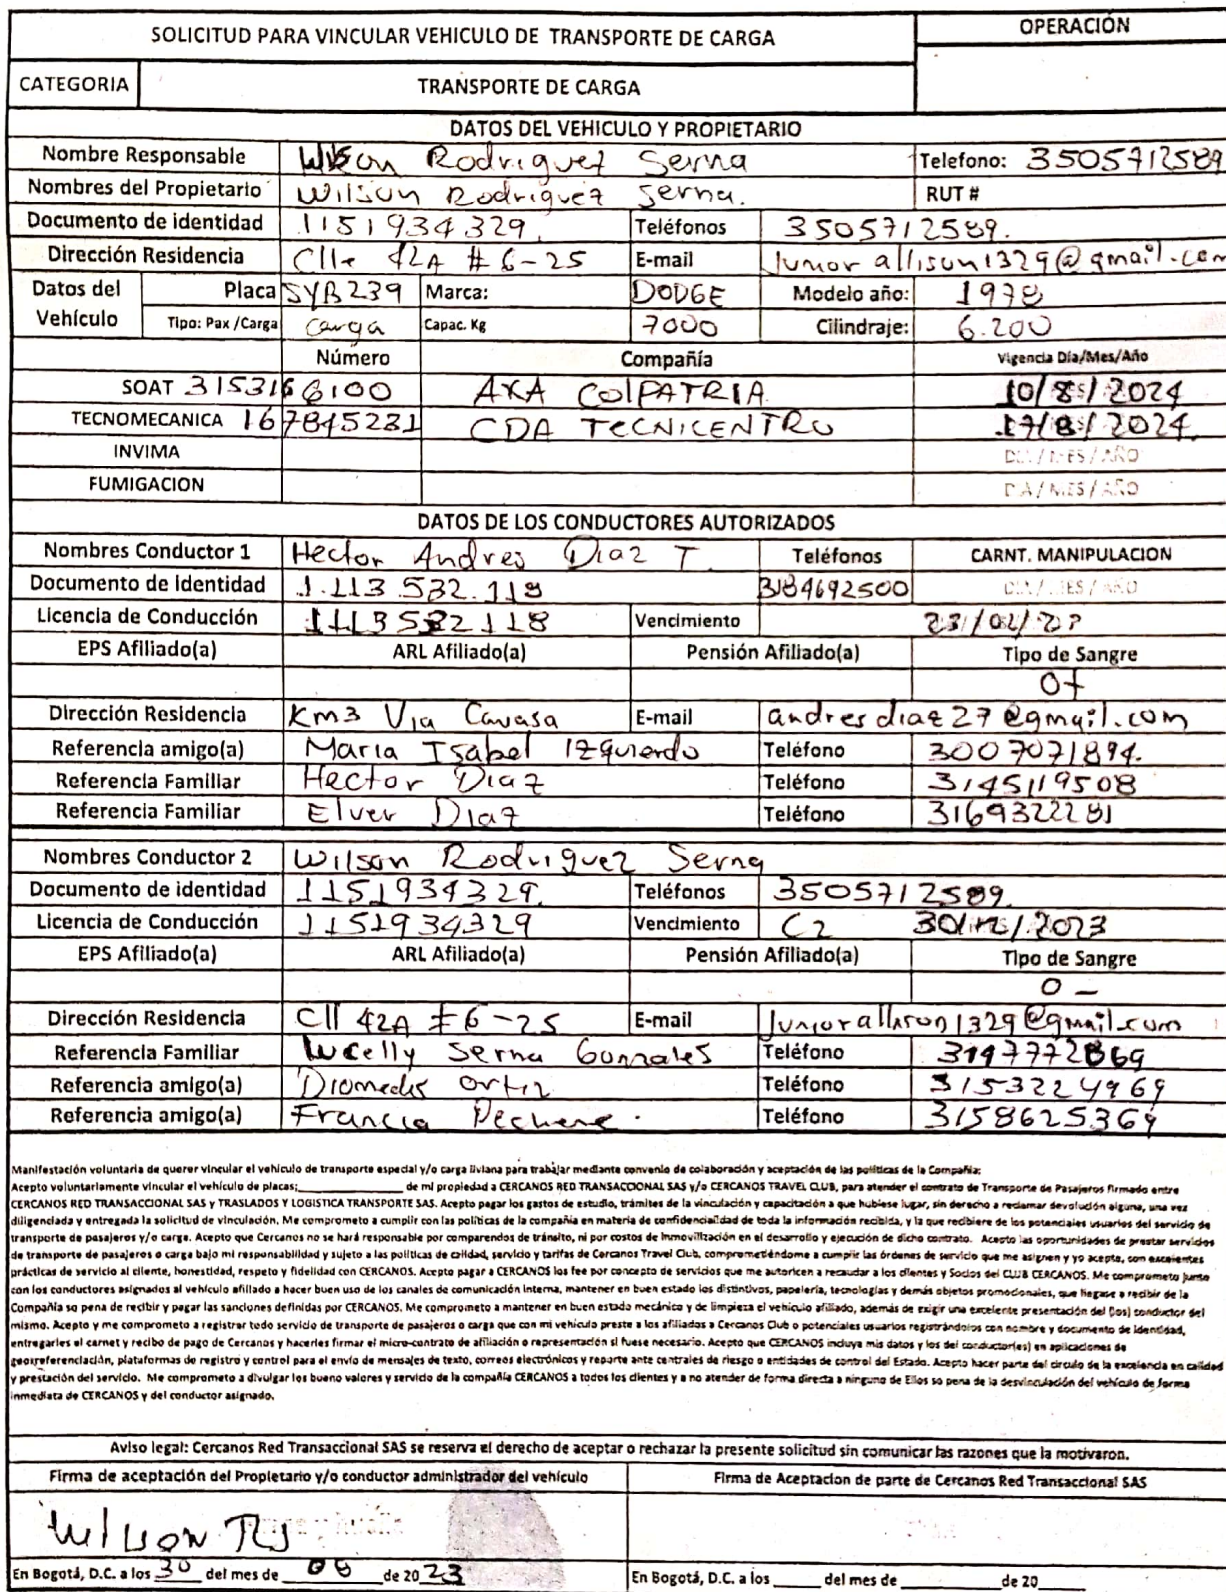 SOLICITUD PARA VINCULAR VEHICULO DE TRANSPORTE DE CARGA OPERACIÓN
CATEGORIA TRANSPORTE DE CARGA
DATOS DEL VEHICULO Y PROPIETARIO
Nombre Responsable Wilson Rodriguez Serna Telefono: 3505712589
Nombres del Propietario Wilson Rodriguez Serna. RUT #
Documento de identidad 1151934329. Teléfonos 3505712589.
Dirección Residencia Clle 42A # 6-25 E-mail Junior allison1329@gmail.com
Datos del Vehículo Placa SYB239 Marca: DODGE Modelo año: 1978
Tipo: Pax /Carga carga Capac. Kg 7000 Cilindraje: 6.200
Número Compañía Vigencia Día/Mes/Año
SOAT 3153166100 AXA COlPATRIA 10/8/2024
TECNOMECANICA 167845231 CDA TECNICENTRO 17/8/2024.
INVIMA DIA/MES/AÑO
FUMIGACION DIA/MES/AÑO
DATOS DE LOS CONDUCTORES AUTORIZADOS
Nombres Conductor 1 Hector Andres Diaz T. Teléfonos CARNT. MANIPULACION
Documento de identidad 1.113.532.118 3184692500 DIA/MES/AÑO
Licencia de Conducción 1113532118 Vencimiento 23/02/27
EPS Afiliado(a) ARL Afiliado(a) Pensión Afiliado(a) Tipo de Sangre
O+
Dirección Residencia Km3 Via Cavasa E-mail andresdiaz27@gmail.com
Referencia amigo(a) Maria Isabel Izquierdo Teléfono 3007071894.
Referencia Familiar Hector Diaz Teléfono 3145119508
Referencia Familiar Elver Diaz Teléfono 3169322281
Nombres Conductor 2 Wilson Rodriguez Serna
Documento de identidad 1151934329. Teléfonos 3505712589.
Licencia de Conducción 1151934329 Vencimiento C2 30/12/2023
EPS Afiliado(a) ARL Afiliado(a) Pensión Afiliado(a) Tipo de Sangre
O -
Dirección Residencia Cll 42A #6-25 E-mail Juniorallison1329@gmail.com
Referencia Familiar Lucelly Serna Gonzales Teléfono 3147772869
Referencia amigo(a) Diomedes Ortiz Teléfono 3153224969
Referencia amigo(a) Francia Pechene. Teléfono 3158625369
Manifestación voluntaria de querer vincular el vehículo de transporte especial y/o carga liviana para trabajar mediante convenio de colaboración y aceptación de las políticas de la Compañía:
Acepto voluntariamente vincular el vehículo de placas;____________ de mi propiedad a CERCANOS RED TRANSACCIONAL SAS y/o CERCANOS TRAVEL CLUB, para atender el contrato de Transporte de Pasajeros firmado entre
CERCANOS RED TRANSACCIONAL SAS y TRASLADOS Y LOGISTICA TRANSPORTE SAS. Acepto pagar los gastos de estudio, trámites de la vinculación y capacitación a que hubiese lugar, sin derecho a reclamar devolución alguna, una vez
diligenciada y entregada la solicitud de vinculación. Me comprometo a cumplir con las políticas de la compañía en materia de confidencialidad de toda la información recibida, y la que recibiere de los potenciales usuarios del servicio de
transporte de pasajeros y/o carga. Acepto que Cercanos no se hará responsable por comparendos de tránsito, ni por costos de inmovilización en el desarrollo y ejecución de dicho contrato. Acepto las oportunidades de prestar servicios
de transporte de pasajeros o carga bajo mi responsabilidad y sujeto a las políticas de calidad, servicio y tarifas de Cercanos Travel Club, comprometiéndome a cumplir las órdenes de servicio que me asignen y yo acepto, con excelentes
prácticas de servicio al cliente, honestidad, respeto y fidelidad con CERCANOS. Acepto pagar a CERCANOS los fee por concepto de servicios que me autoricen a recaudar a los clientes y Socios del CLUB CERCANOS. Me comprometo junto
con los conductores asignados al vehículo afiliado a hacer buen uso de los canales de comunicación interna, mantener en buen estado los distintivos, papelería, tecnologías y demás objetos promocionales, que llegase a recibir de la
Compañía so pena de recibir y pagar las sanciones definidas por CERCANOS. Me comprometo a mantener en buen estado mecánico y de limpieza el vehículo afiliado, además de exigir una excelente presentación del (los) conductor del
mismo. Acepto y me comprometo a registrar todo servicio de transporte de pasajeros o carga que con mi vehículo preste a los afiliados a Cercanos Club o potenciales usuarios registrándolos con nombre y documento de identidad,
entregarles el carnet y recibo de pago de Cercanos y hacerles firmar el micro-contrato de afiliación o representación si fuese necesario. Acepto que CERCANOS incluya mis datos y los del conductor(es) en aplicaciones de
georreferenciación, plataformas de registro y control para el envío de mensajes de texto, correos electrónicos y reporte ante centrales de riesgo o entidades de control del Estado. Acepto hacer parte del circulo de la excelencia en calidad
y prestación del servicio. Me comprometo a divulgar los bueno valores y servicio de la compañía CERCANOS a todos los clientes y a no atender de forma directa a ninguno de Ellos so pena de la desvinculación del vehículo de forma
inmediata de CERCANOS y del conductor asignado.
Aviso legal: Cercanos Red Transaccional SAS se reserva el derecho de aceptar o rechazar la presente solicitud sin comunicar las razones que la motivaron.
Firma de aceptación del Propietario y/o conductor administrador del vehículo Firma de Aceptacion de parte de Cercanos Red Transaccional SAS
Wilson RS
En Bogotá, D.C. a los 30 del mes de 08 de 2023 En Bogotá, D.C. a los _____ del mes de _________ de 20____